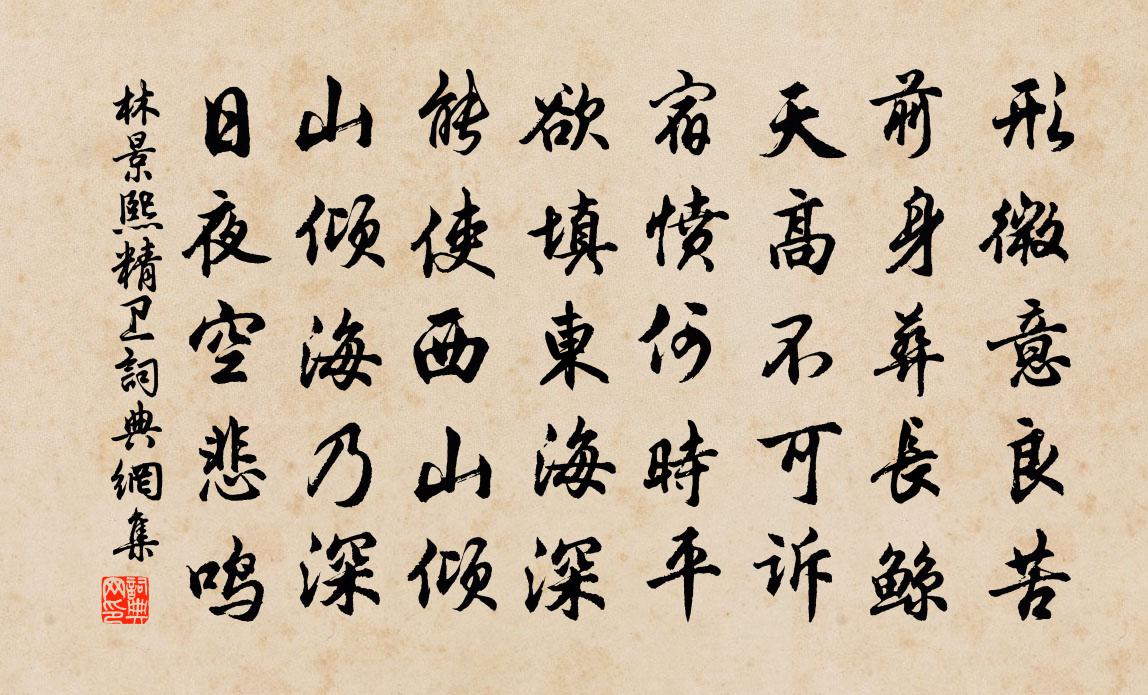 形微意良苦
前身葬長鲸
天高不可诉
宿愤何時平
欲填東海深
能使西山傾
山傾海乃深
日夜空悲鸣
林景熙精卫詞典網集
詞典网印